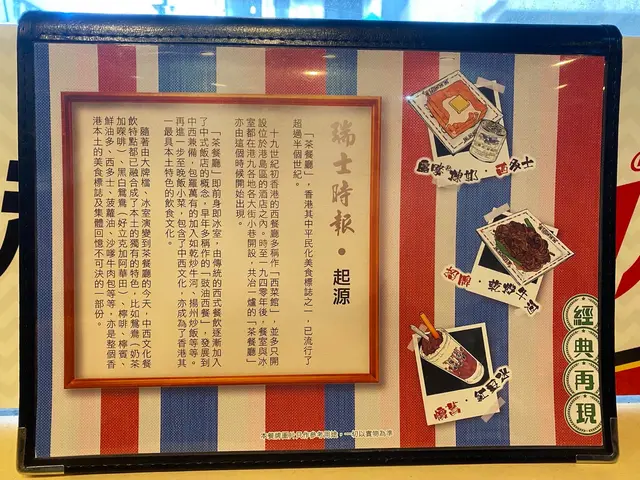 瑞士時報•起源
「茶餐廳」，香港其中平民化美食標誌之一，已流行了
超過半個世紀。
十九世紀初香港的西餐廳多稱作「西菜館」，並多只開
設位於港島區的酒店之內。時至一九四零年後，餐室與冰
室都在港九各地各大街小巷開設，共冶一爐的「茶餐廳」
亦由這個時候開始出現。
「茶餐廳」即前身即冰室，由傳統的西式餐飲逐漸加入
了中式飯店的概念，早年多稱作的「豉油西餐」，發展到
中西兼備，包羅萬有的加入如乾炒牛河、揚州炒飯等等。
再進一步至晚飯小菜，包含了中西文化，亦成為了香港其
一最具本土特色的飲食文化。
隨著由大牌檔、冰室演變到茶餐廳的今天，中西文化餐
飲特點都已融合成了本土的獨有的特色，比如鴛鴦（奶茶
加啡）、黑白鴛鴦（好立克加阿華田）、檸啡、檸賓、
鮮油多、西多士、菠蘿油、沙嗲牛肉包等等，亦是整個香
港本土的美食標誌及集體回憶不可決的一部份。
西多士
紅豆冰
經典再現
本餐牌圖片只作參考用途，一切以實物為準